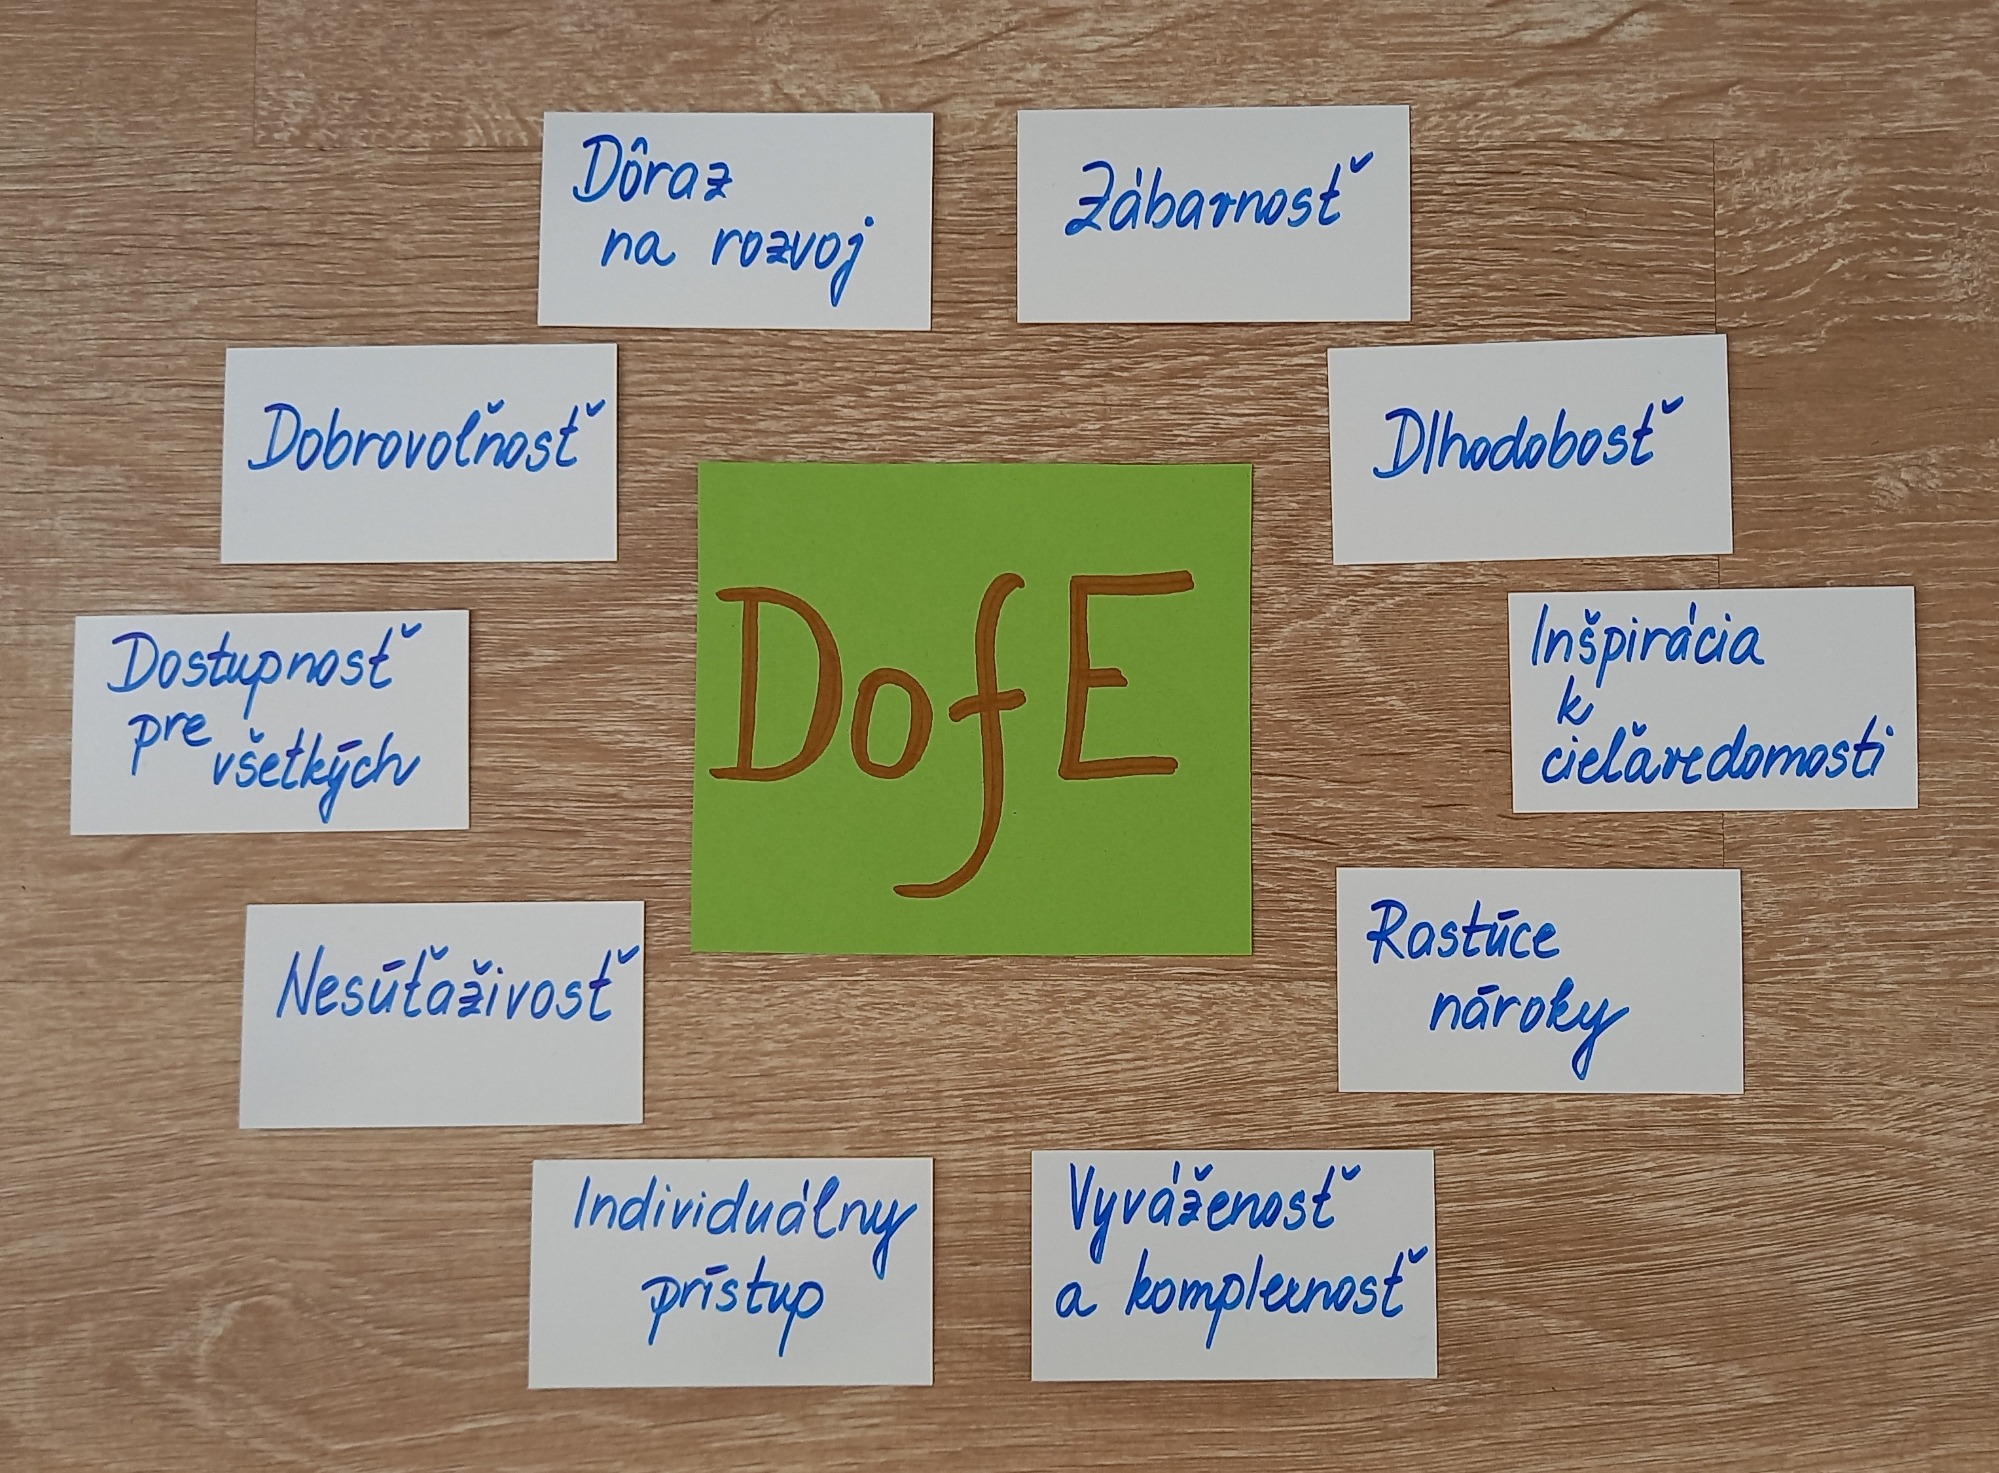 Dôraz
na rozvoj
Zábavnosť
Dobrovoľnosť
Dlhodobosť
DofE
Dostupnosť
pre
všetkých
Inšpirácia
k
cieľavedomosti
Nesúťaživosť
Rastúce
nároky
Individuálny
prístup
Vyváženosť
a komplexnosť